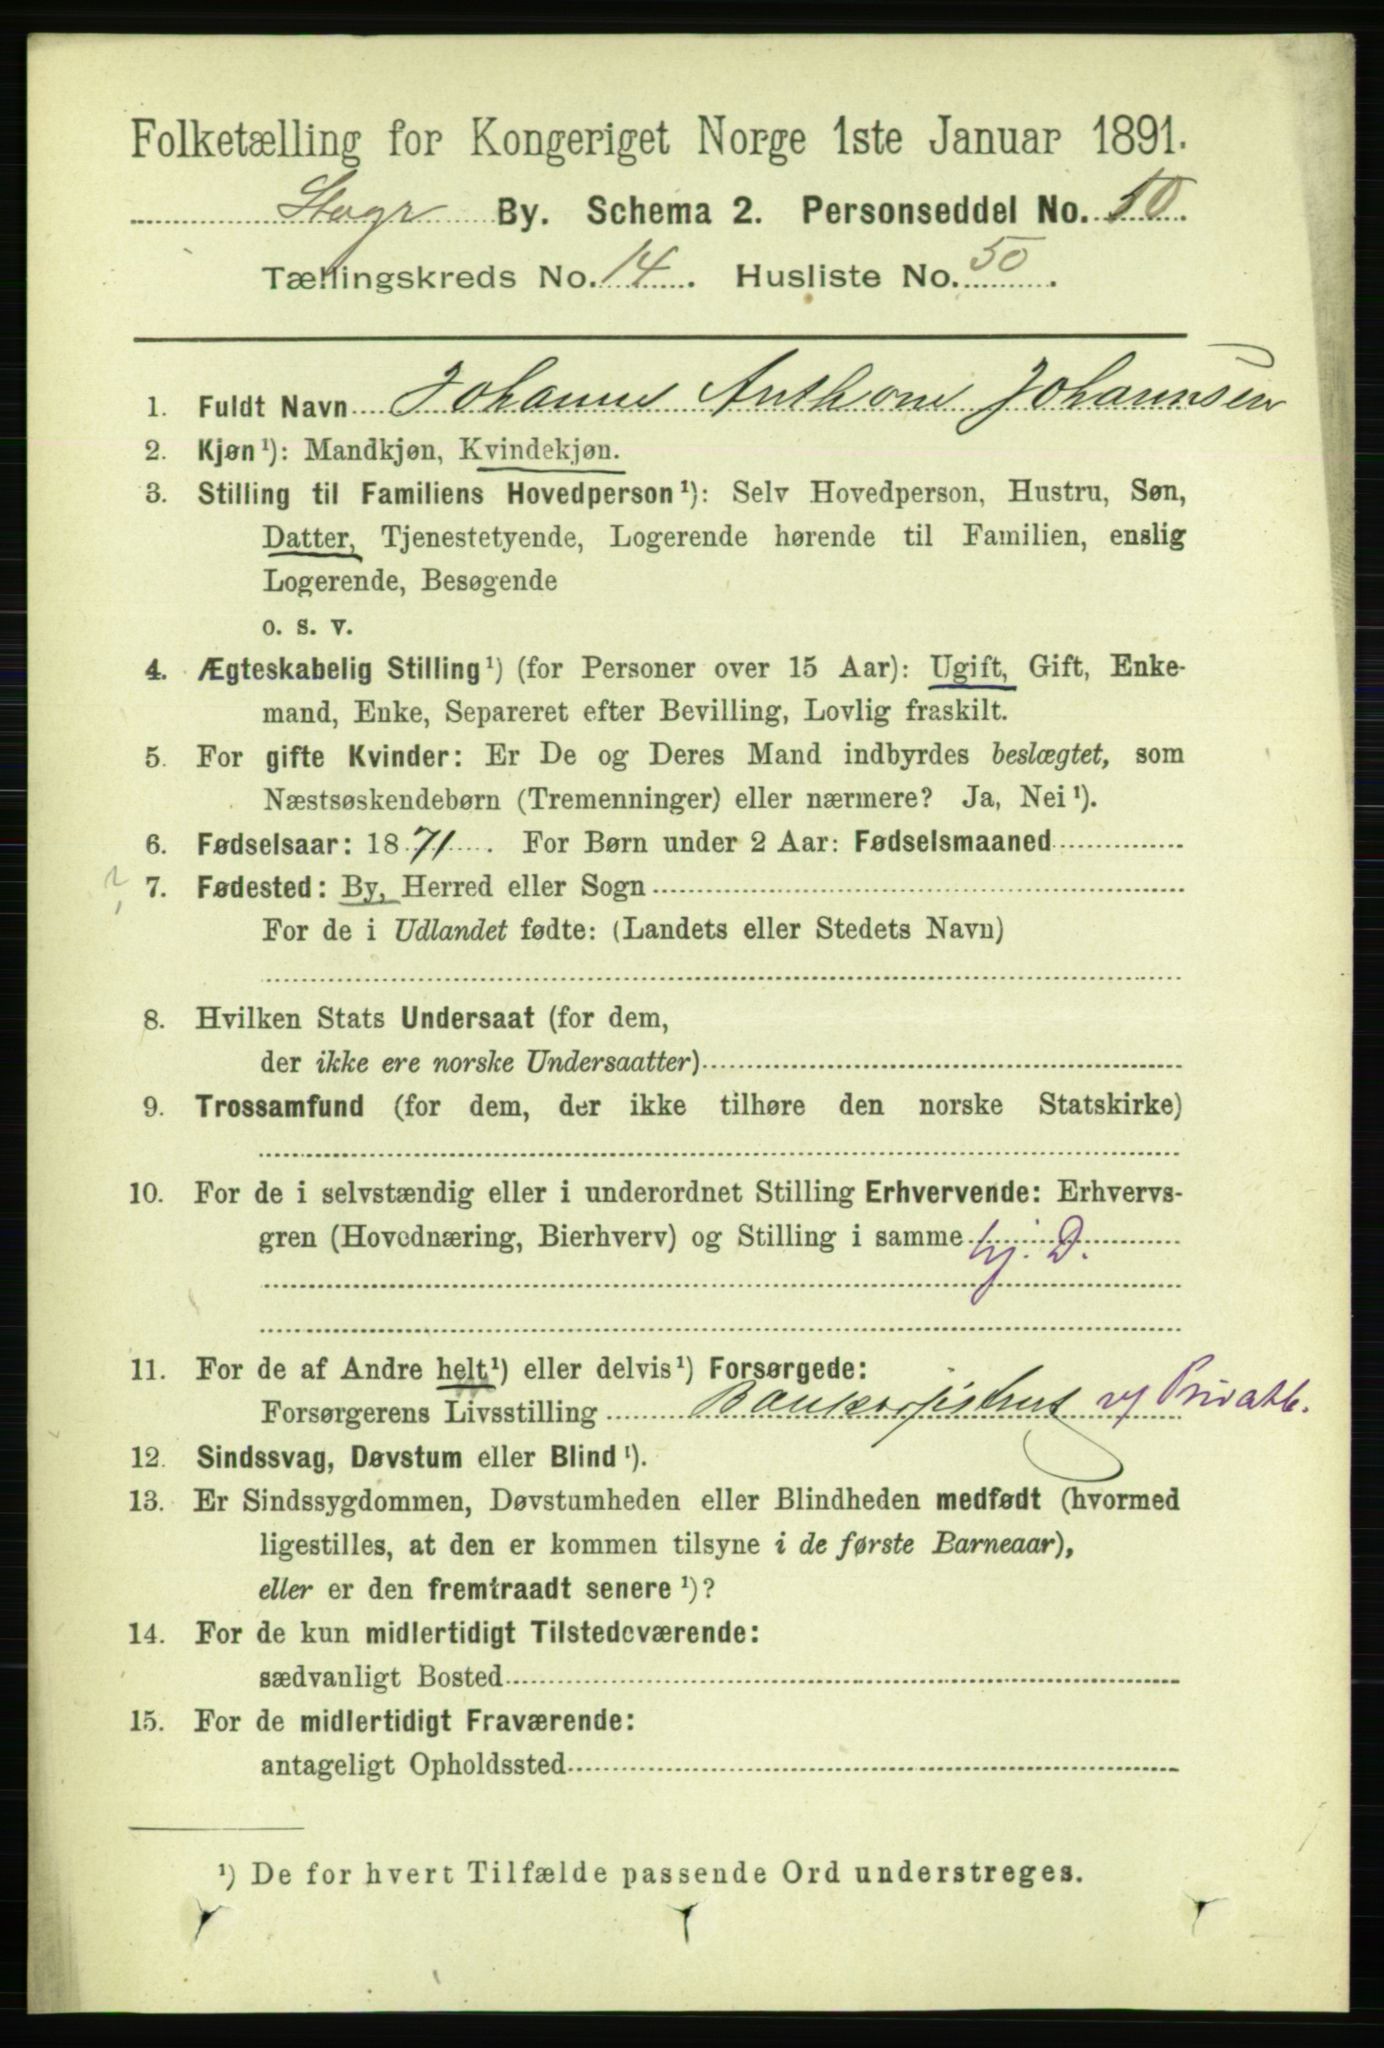 Folketælling for Kongeriget Norge 1ste Januar 1891.
By. Schema 2. Personseddel No. 10.
Tællingskreds No. 14. Husliste No. 50.
1. Fuldt Navn Johanne Anthone Johannsen
2. Kjøn¹): Mandkjøn, Kvindekjøn.
3. Stilling til Familiens Hovedperson¹): Selv Hovedperson, Hustru, Søn,
Datter, Tjenestetyende, Logerende hørende til Familien, enslig
Logerende, Besøgende
o. s. v.
4. Ægteskabelig Stilling¹) (for Personer over 15 Aar): Ugift, Gift, Enke-
mand, Enke, Separeret efter Bevilling, Lovlig fraskilt.
5. For gifte Kvinder: Er De og Deres Mand indbyrdes beslægtet, som
Næstsøskendebørn (Tremenninger) eller nærmere? Ja, Nei¹).
6. Fødselsaar: 1871. For Børn under 2 Aar: Fødselsmaaned
? 7. Fødested: By, Herred eller Sogn
For de i Udlandet fødte: (Landets eller Stedets Navn)
8. Hvilken Stats Undersaat (for dem,
der ikke ere norske Undersaatter)
9. Trossamfund (for dem, der ikke tilhøre den norske Statskirke)
10. For de i selvstændig eller i underordnet Stilling Erhvervende: Erhvervs-
gren (Hovednæring, Bierhverv) og Stilling i samme hj. D.
11. For de af Andre helt¹) eller delvis¹) Forsørgede:
Forsørgerens Livsstilling v/ Privatb.
12. Sindssvag, Døvstum eller Blind¹).
13. Er Sindssygdommen, Døvstumheden eller Blindheden medfødt (hvormed
ligestilles, at den er kommen tilsyne i de første Barneaar),
eller er den fremtraadt senere¹)?
14. For de kun midlertidigt Tilstedeværende:
sædvanligt Bosted
15. For de midlertidigt Fraværende:
antageligt Opholdssted
¹) De for hvert Tilfælde passende Ord understreges.